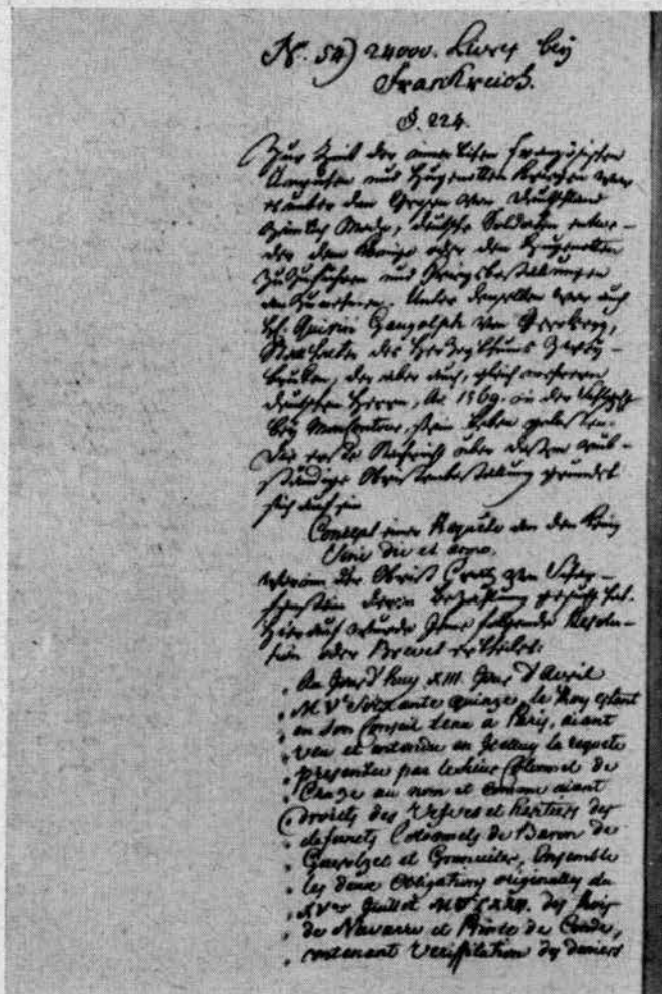 N. 54) 24000. Livres bey
Frankreich.
§. 224.
Zur Zeit der innerlichen französischen
Unruhen und Hugenotten Kriegen war
es unter den Grosen von Deutschland
ziemlich Mode, deutsche Soldaten entwe-
der dem Könige oder den Hugenotten
zuzuführen und Kriegsbestallungen
anzunehmen. Unter denselben war auch
H. Quirin Gangolph von Geroltzeg,
Statthalter des Herzogthums Zwey-
brücken, der aber auch, gleich mehreren
deutschen Herren, Ao. 1569. in der Schlacht
bey Moncontour, sein Leben gelassen.
Die erste Nachricht über dessen rück-
ständige Obristenbestallung gründet
sich auf ein
Concept einer Requête an den König
sine die et anno.
worinn der Obrist Cratz von Scharf-
fenstein deren Bezahlung gesucht hat.
Hierauf wurde Ihme folgende Resolu-
tion oder Brevet ertheilet:
Au Jourd'huy XIII. Jour d'Avril
M Vc Soixante quinze, le Roy estant
en Son Conseil tenu a Paris, aiant
veu et entendu en Iceluy la requete
presentée par le Sieur Colonnel de
Craze au nom et comme aiant
droicts des Vefves et heritiers des
defuncts Colonnels de Baron de
Gueroltzet et Granviler, Ensemble
les deux Obligations originalles du
de Navarre et Prince de Condé,
contenant Verification des deniers